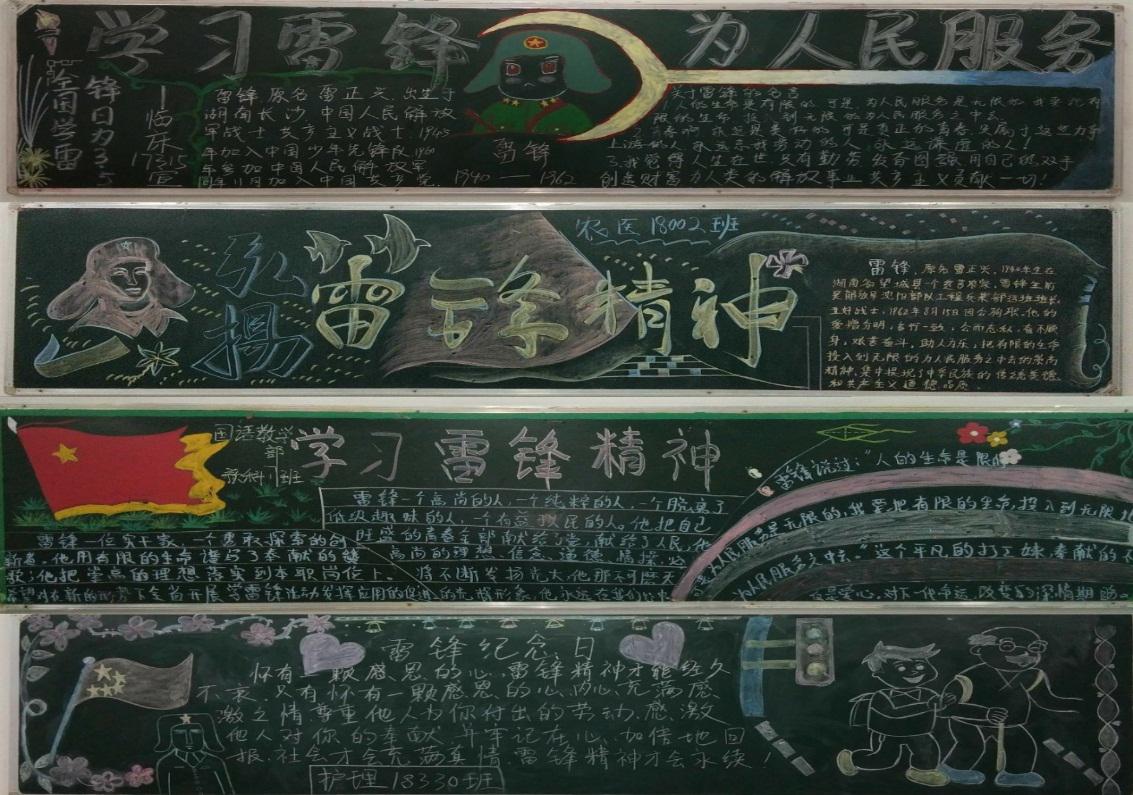 学习雷锋 为人民服务
全国学雷
锋日为3·5
临床
17315
宣
雷锋,原名雷正兴,出生于
湖南长沙,中国人民解放
军战士,共产主义战士,
年加入中国少年先锋队,1960
年参加中国人民解放军,
同年11月加入中国共产党。
雷锋
1940——1962
关于雷锋的名言
1.人的生命是有限的,可是,为人民服务是无限的,我要把有
限的生命,投入到无限的为人民服务之中去。
2.青春啊,永远是美好的,可是真正的青春,只属于这些力争
上游的人,永远忘我劳动的人,永远谦虚的人!
3.我觉得人生在世,只有勤劳,发奋图强,用自己的双手
创造财富,为人类的解放事业共产主义贡献一切!
弘扬
雷锋精神
农医18002班
雷锋,原名雷正兴,1940年生在
湖南省望城县一个贫苦农家,雷锋生前
是解放军沈阳部队工程兵某部运输班班长,
五好战士,1962年8月15日因公殉职,他的
爱憎分明,言行一致,公而忘私,奋不顾
身,艰苦奋斗,助人为乐,把有限的生命
投入到无限的为人民服务之中去的崇高
精神,集中体现了中华民族的传统美德
和共产主义道德品质
国语教学
部
班
学习雷锋精神
雷锋一个高尚的人,一个纯粹的人,一个脱离了
低级趣味的人,一个有益于民的人。他把自己
旺盛的青春全部献给了党,献给了人民,他
高尚的理想、信念、道德、情操,必
将不断发扬光大,他那不可磨灭
雷锋一位实干家,一个勇敢探索的创
新者,他用有限的生命谱写了奉献的赞
歌,他把崇高的理想落实到本职岗位上。
雷锋说过:“人的生命是有限的
是无限的,我要把有限的生命,投入到无限的
为人民服务之中去”这个平凡的打工妹,奉献的不
雷锋纪念日
怀有一颗感恩的心,雷锋精神才能经久
不衰,只有怀有一颗感恩的心,内心充满感
激之情,尊重他人为你付出的劳动,感激
他人对你的奉献,并牢记在心,加倍地回
报,社会才会充满真情,雷锋精神才会永续!
护理18330班